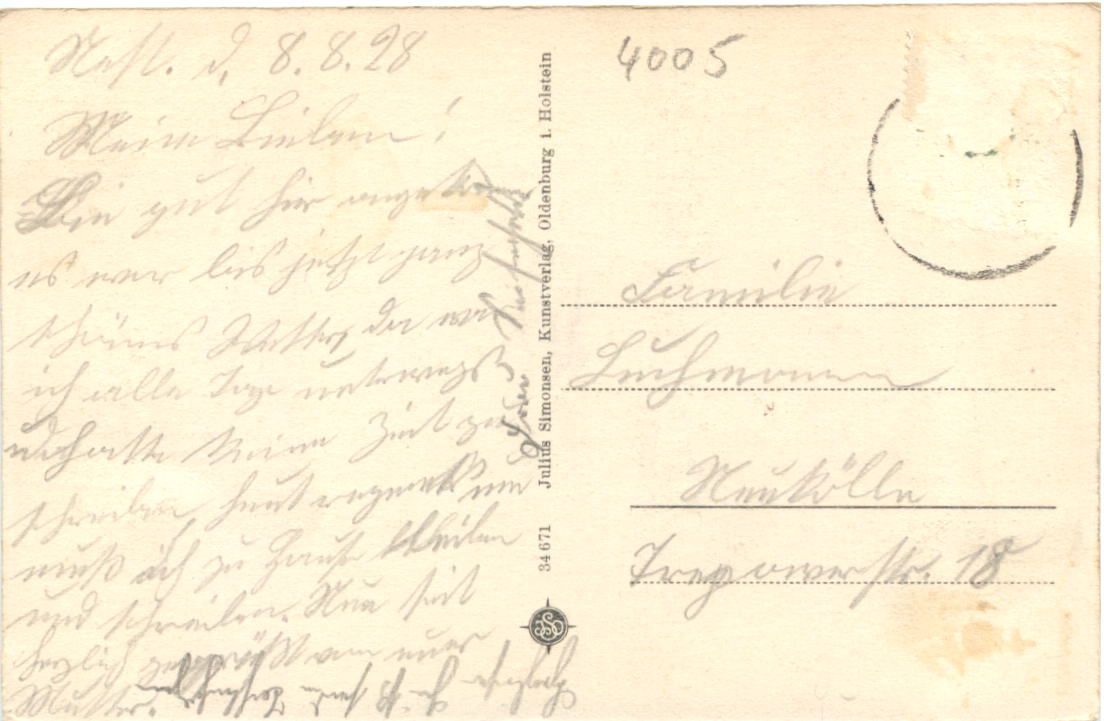 d. 8.8.28
Meine Lieben!
Bin gut hier angekom
es war bis jetzt ganz
schönes Wetter, da war
ich alle Tage unterwegs
und hatte keine Zeit zu
schreiben, heut regnet es nun
muß ich zu Hause bleiben
und schreiben. Nun seit
herzlich gegrüßt von eurer
Mutter.
4005
Familie
Luchmann
Neukölln
Treptowerstr. 18
34671 Julius Simonsen, Kunstverlag, Oldenburg i. Holstein